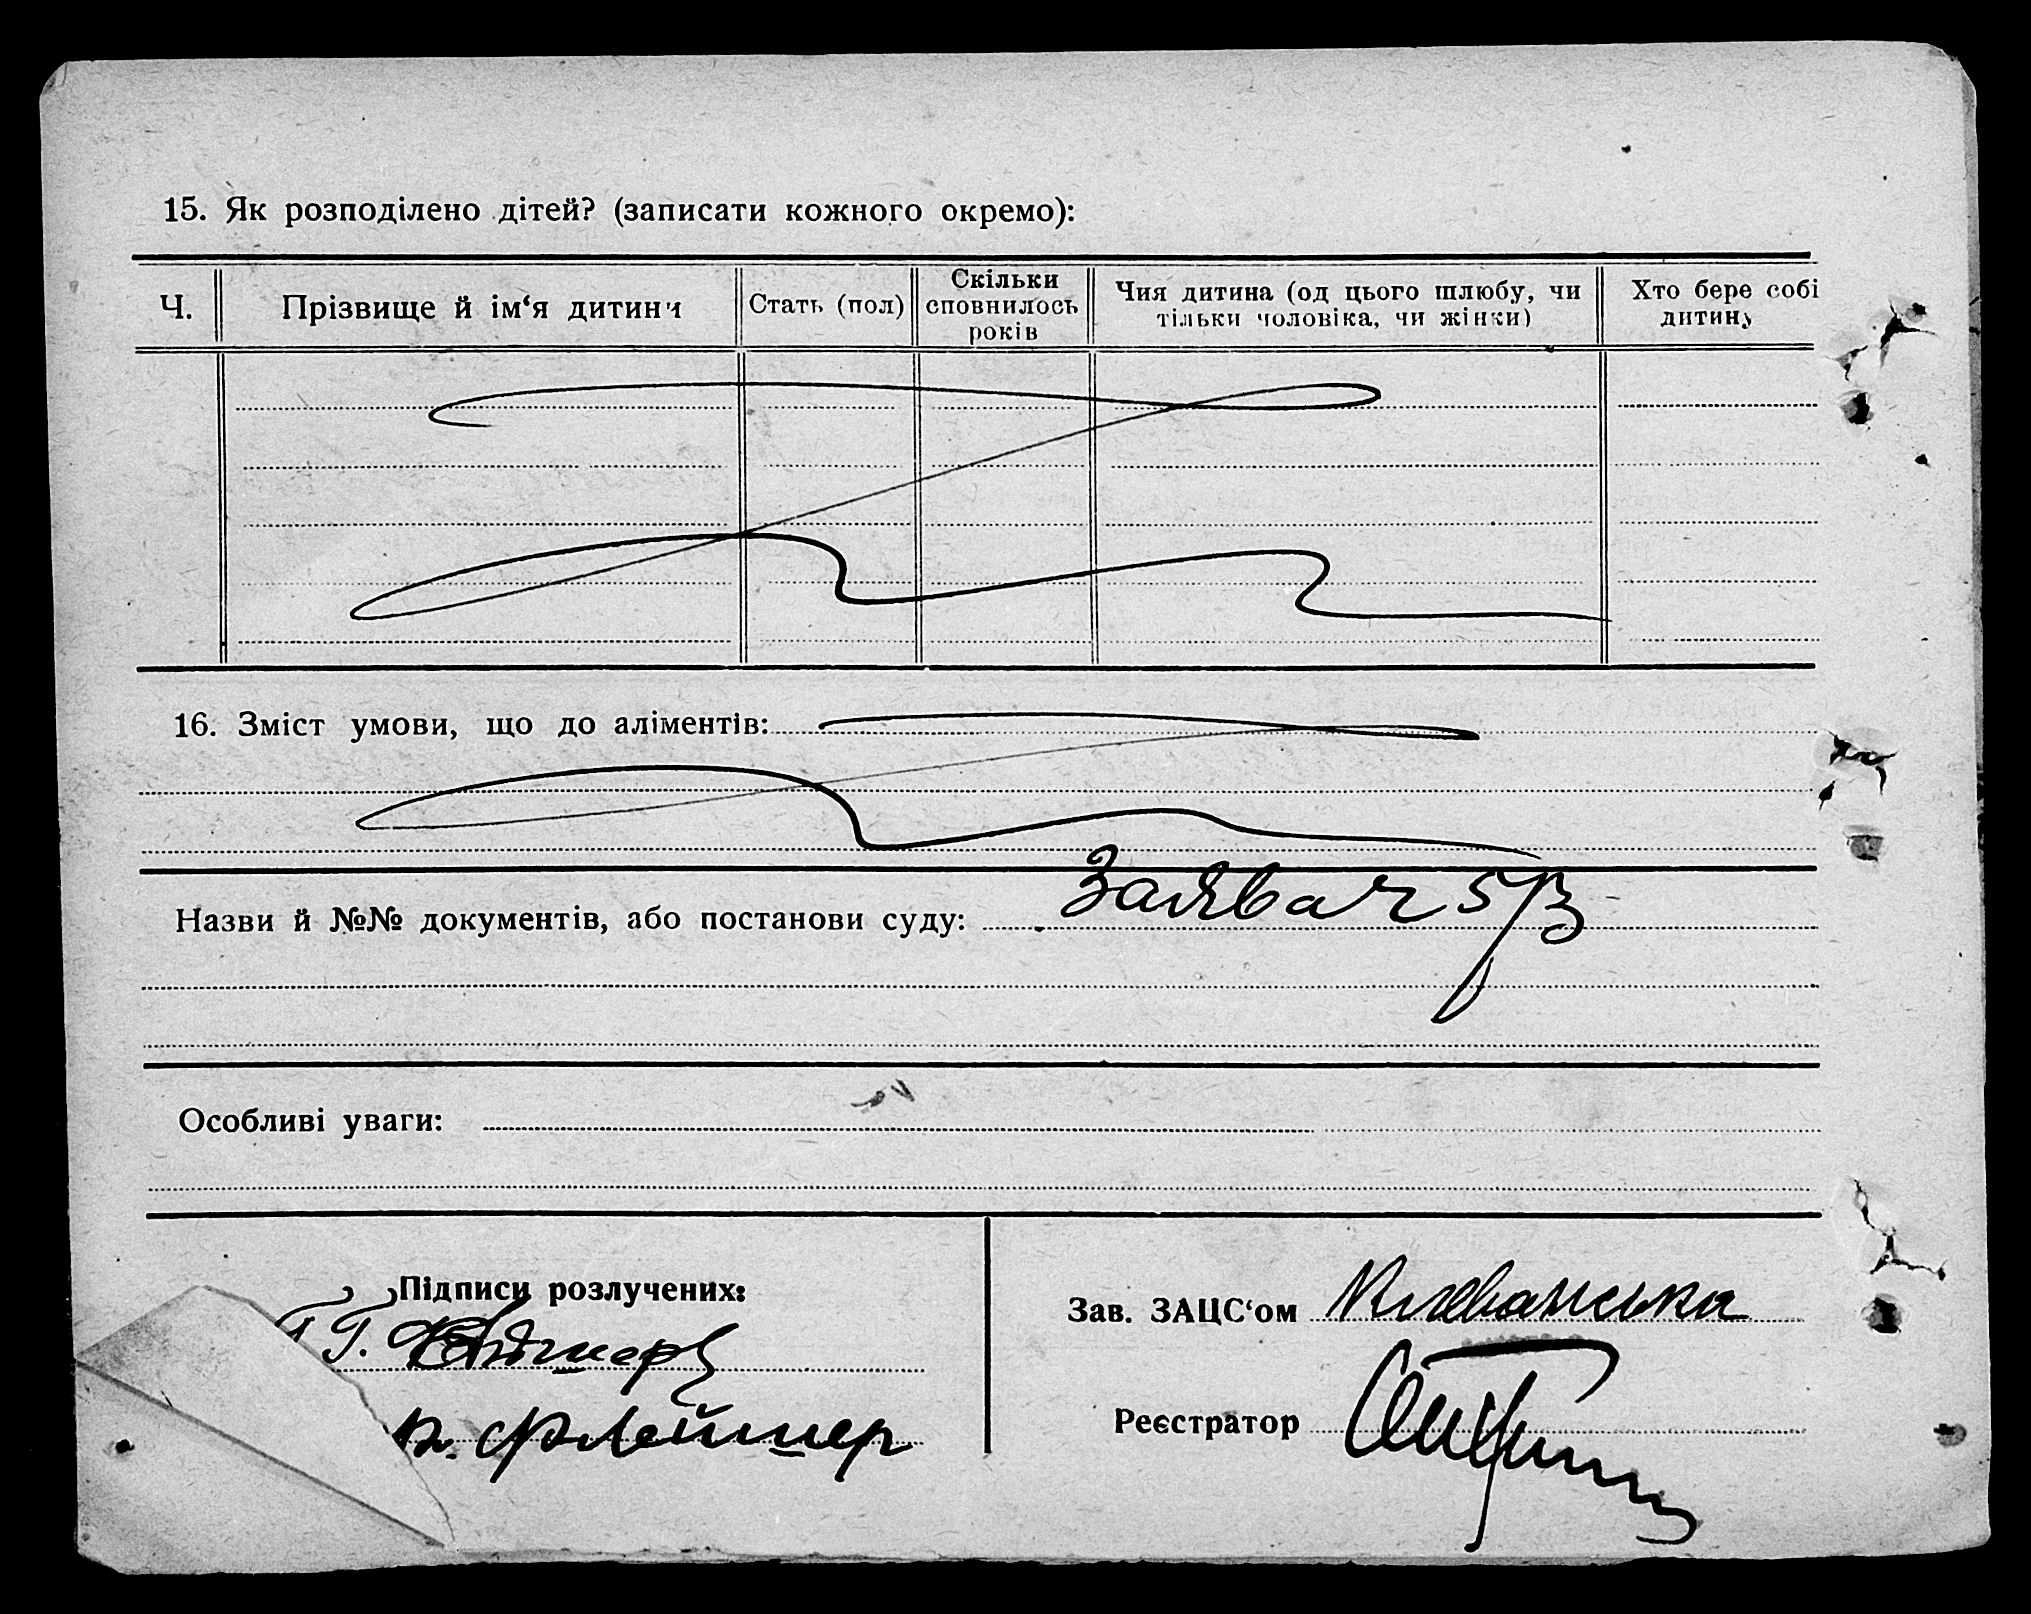 15. Як розподілено дітей? (записати кожного окремо):
Ч. Прізвище й ім‘я дитини Стать (пол) Скільки сповнилось років Чия дитина (од цього шлюбу, чи тільки чоловіка, чи жінки) Хто бере собі дитину
16. Зміст умови, що до аліментів:
Назви й №№ документів, або постанови суду:
Особливі уваги:
Підписи розлучених:
Г.
В. Флейшер
Зав. ЗАЦС‘ом Клеванська
Реєстратор